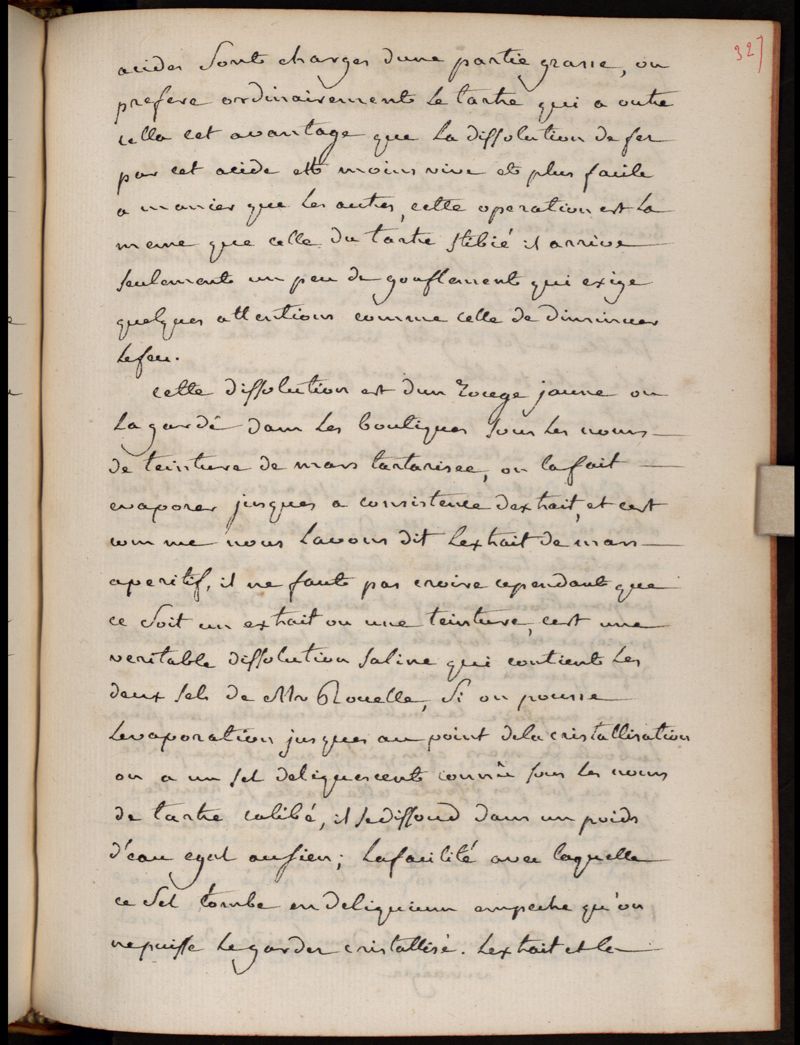 327
acides sont charges dune partie grasse, on
prefere ordinairement le tartre qui a outre
cella cet avantage que la dissolution de fer
par cet acide est moins vive et plus facile
a manier que les autres, cette operation est la
meme que celle du tartre stibié il arrive
seulement un peu de gonflement qui exige
quelques attentions comme celle de diminuer
le feu.
cette dissolution est dun rouge jaune on
la garde dans les boutiques sous les noms
de teinture de mars tartarisee, on la fait
evaporer jusques a consistence dextrait, et cest
comme nous lavons dit lextrait de mars
aperitif, il ne faut pas croire cependant que
ce soit un extrait ou une teinture, cest une
veritable dissolution saline qui contient les
deux sels de Mr Rouelle, si on pousse
levaporation jusques au point dela cristallisation
on a un sel deliquescent connu sous les noms
de tartre calibé, il se dissoud dans un poids
d'eau egal au sien; la facilité avec laquelle
ce sel tombe en deliquium empeche qu'on
ne puisse le garder cristallisé. lextrait et la